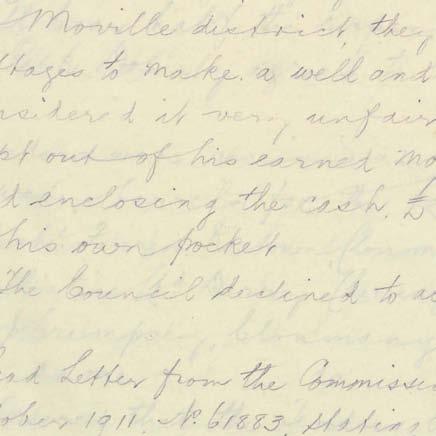 Moville district, they
ttages to make a well and
nsidered it very unfair
pt out of his earned mo
d enclosing the cash.
his own pocket
The Council declined to a
ead Letter from the Commissio
tober 1911. No. 61883, stating